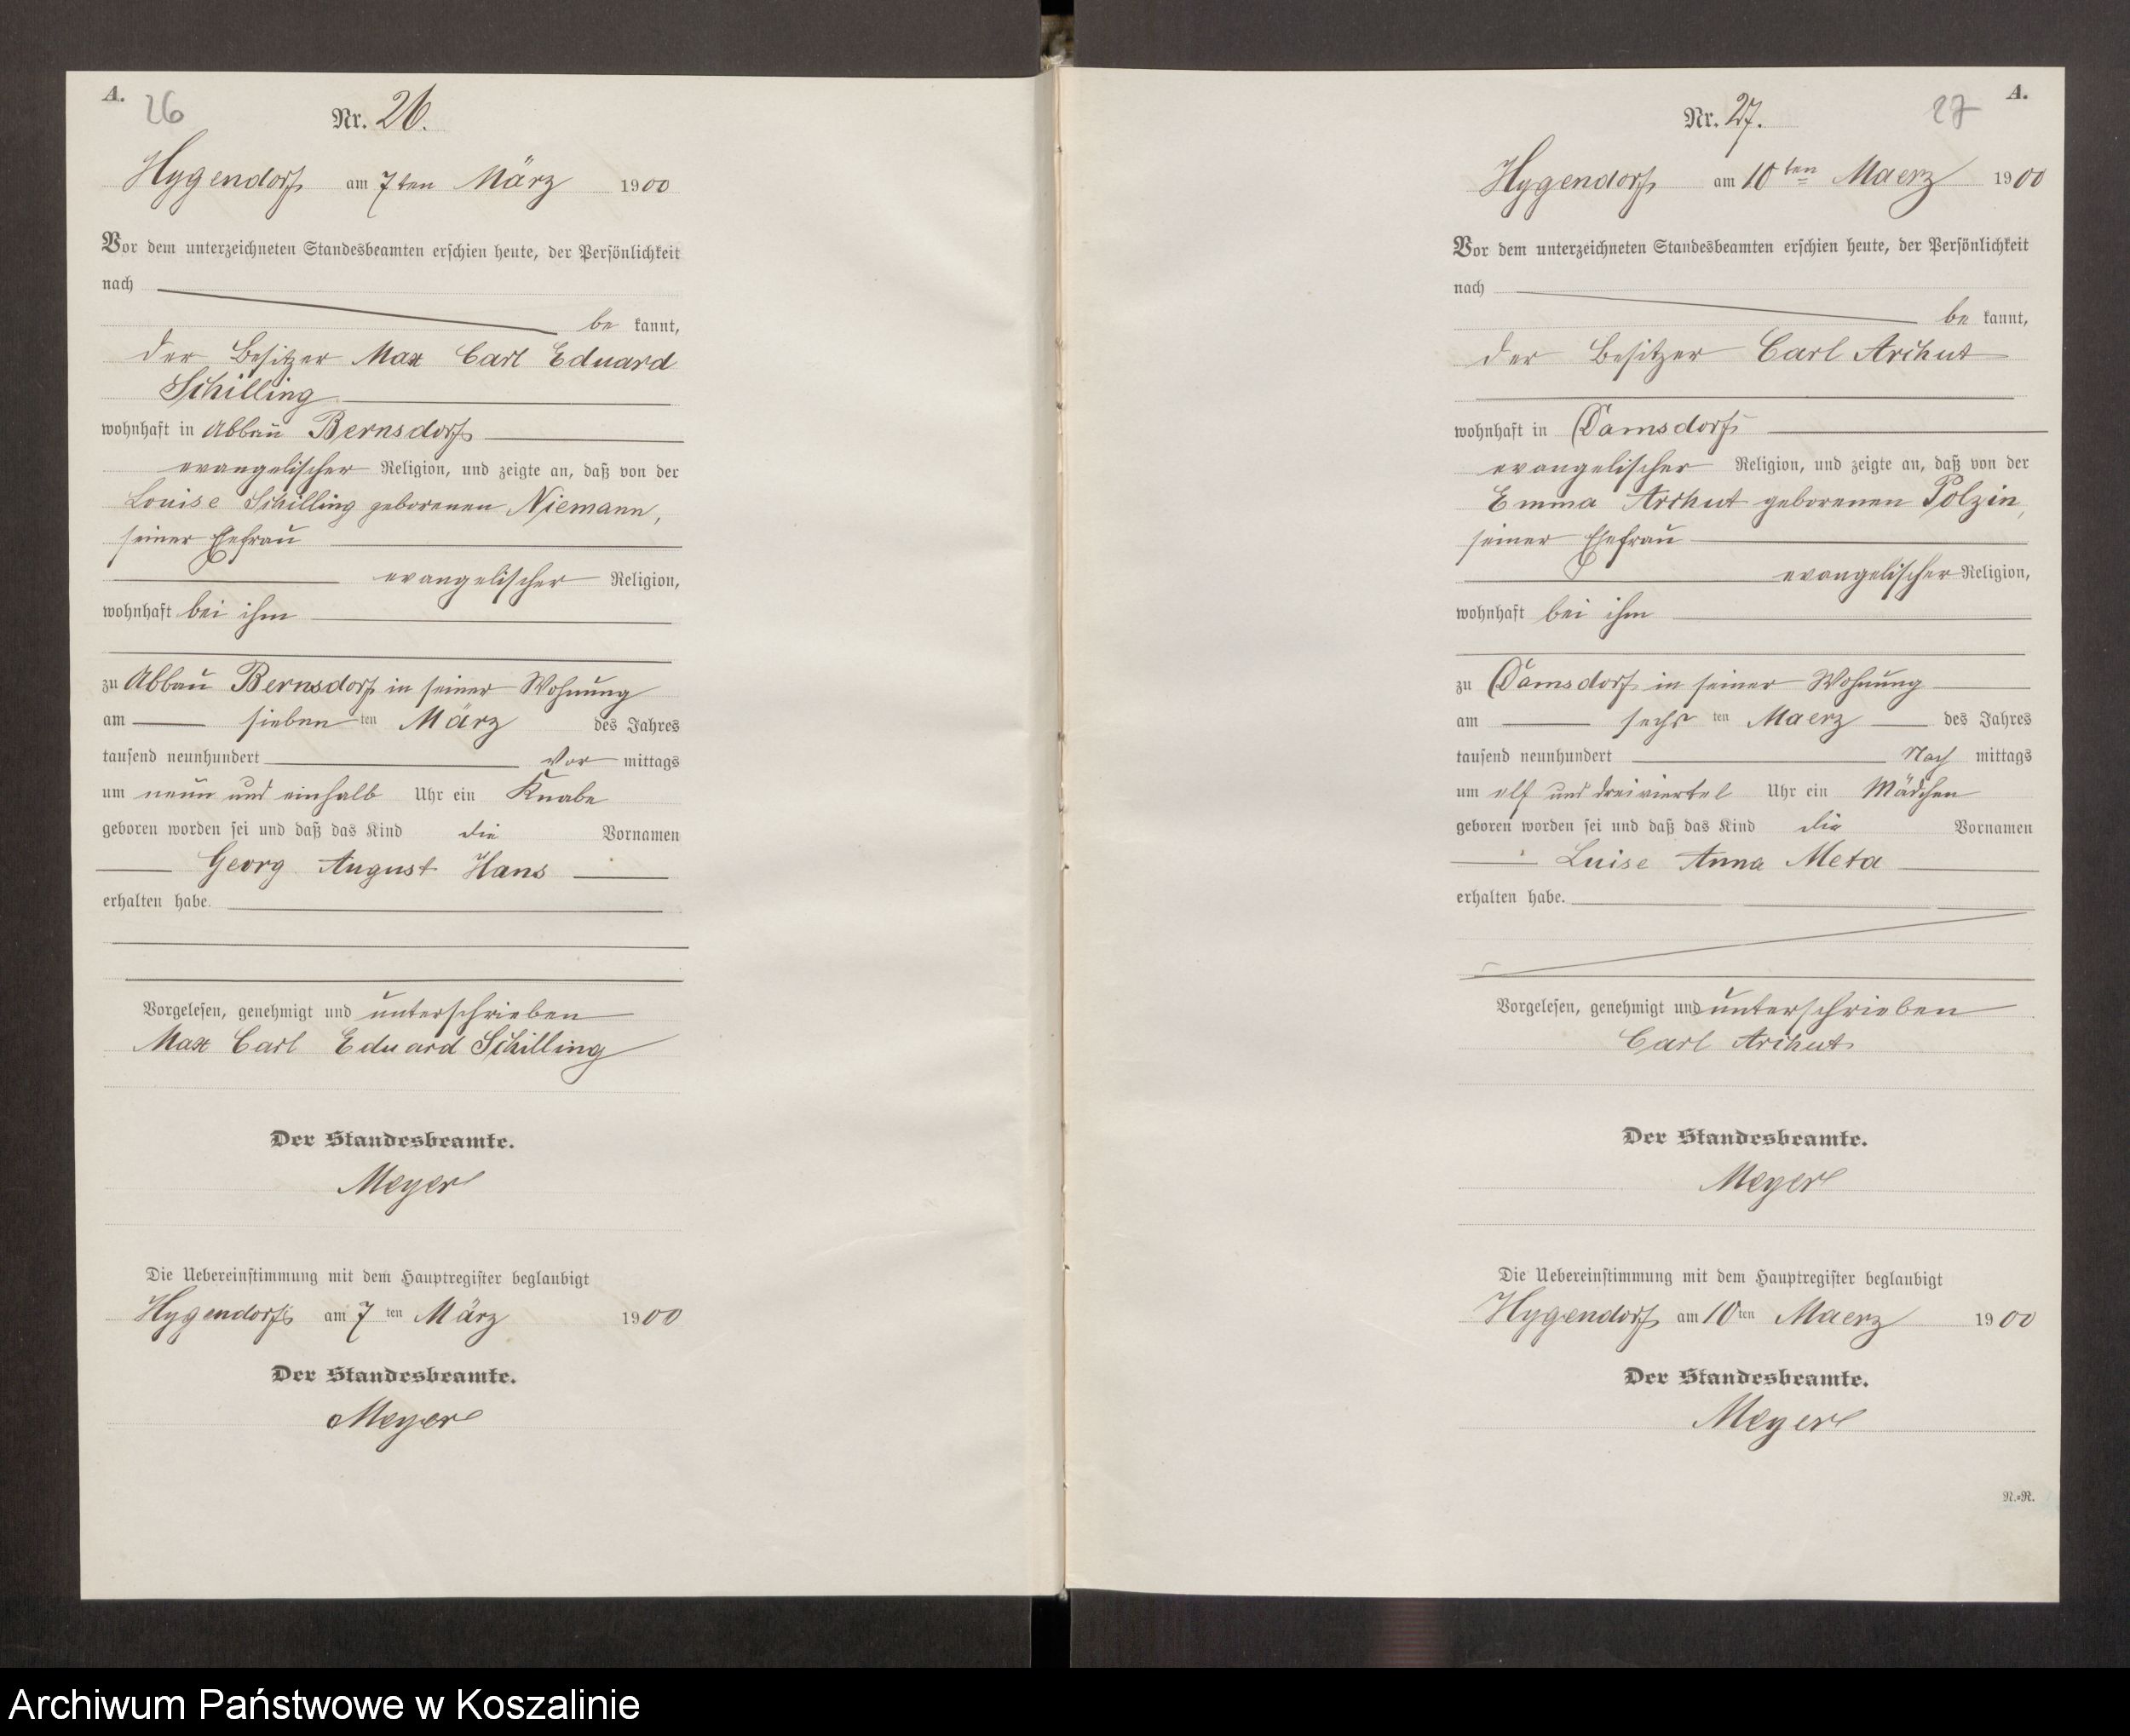 A.
26
Nr. 26.
Hygendorf am 7ten März 1900
Vor dem unterzeichneten Standesbeamten erschien heute, der Persönlichkeit
nach
be kannt,
der Besitzer Max Carl Eduard
Schilling
wohnhaft in Abbau Bernsdorf
evangelischer Religion, und zeigte an, daß von der
Louise Schilling geborenen Niemann,
seiner Ehefrau
evangelischer Religion,
wohnhaft bei ihm
zu Abbau Bernsdorf in seiner Wohnung
am sieben ten März des Jahres
tausend neunhundert Vor mittags
um neun und einhalb Uhr ein Knabe
geboren worden sei und daß das Kind die Vornamen
Georg August Hans
erhalten habe.
Vorgelesen, genehmigt und unterschrieben
Max Carl Eduard Schilling
Der Standesbeamte.
Meyer
Die Uebereinstimmung mit dem Hauptregister beglaubigt
Hygendorf am 7 ten März 1900
Der Standesbeamte.
Meyer
A.
27
Nr. 27.
Hygendorf am 10ten Maerz 1900
Vor dem unterzeichneten Standesbeamten erschien heute, der Persönlichkeit
nach
be kannt,
der Besitzer Carl Archut
wohnhaft in Damsdorf
evangelischer Religion, und zeigte an, daß von der
Emma Archut geborenen Polzin,
seiner Ehefrau
evangelischer Religion,
wohnhaft bei ihm
zu Damsdorf in seiner Wohnung
am sechs ten Maerz des Jahres
tausend neunhundert Nach mittags
um elf und dreiviertel Uhr ein Mädchen
geboren worden sei und daß das Kind die Vornamen
Luise Anna Meta
erhalten habe.
Vorgelesen, genehmigt und unterschrieben
Carl Archut
Der Standesbeamte.
Meyer
Die Uebereinstimmung mit dem Hauptregister beglaubigt
Hygendorf am 10ten Maerz 1900
Der Standesbeamte.
Meyer
N.=R.
Archiwum Państwowe w Koszalinie